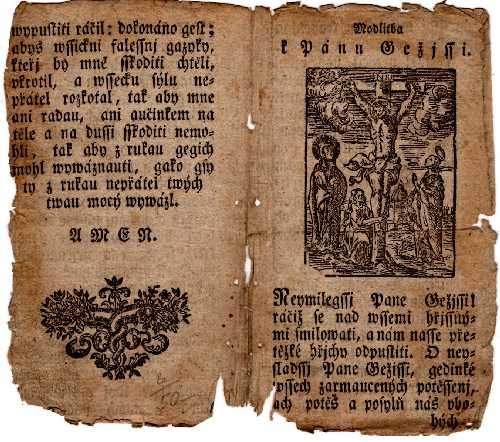 wypustiti ráčil: dokonáno gest;
abys wssickni falessnj gazyky,
kteřj by mně sskoditi chtěli,
vkrotil, a wssecku sýlu ne-
přátel rozkotal, tak aby mne
ani radau, ani aučinkem na
těle a na dussi sskoditi nemo-
hli, tak aby z rukau gegich
mohl wywáznauti, gako gsy
ty z rukau nepřátel twých
twau mocý wywázl.
AMEN.
Modlitba
k Pánu Gežjssi.
Neymilegssj Pane Gežjssi!
račiž se nad wssemi hřjssný-
mi smilowati, a nám nasse pře-
těžké hřjchy odpustiti. O ney-
sladssj Pane Gežjssi, gedinké
wssech zarmaucených potěssenj,
ach potěš a posylň nás vbo-
hých